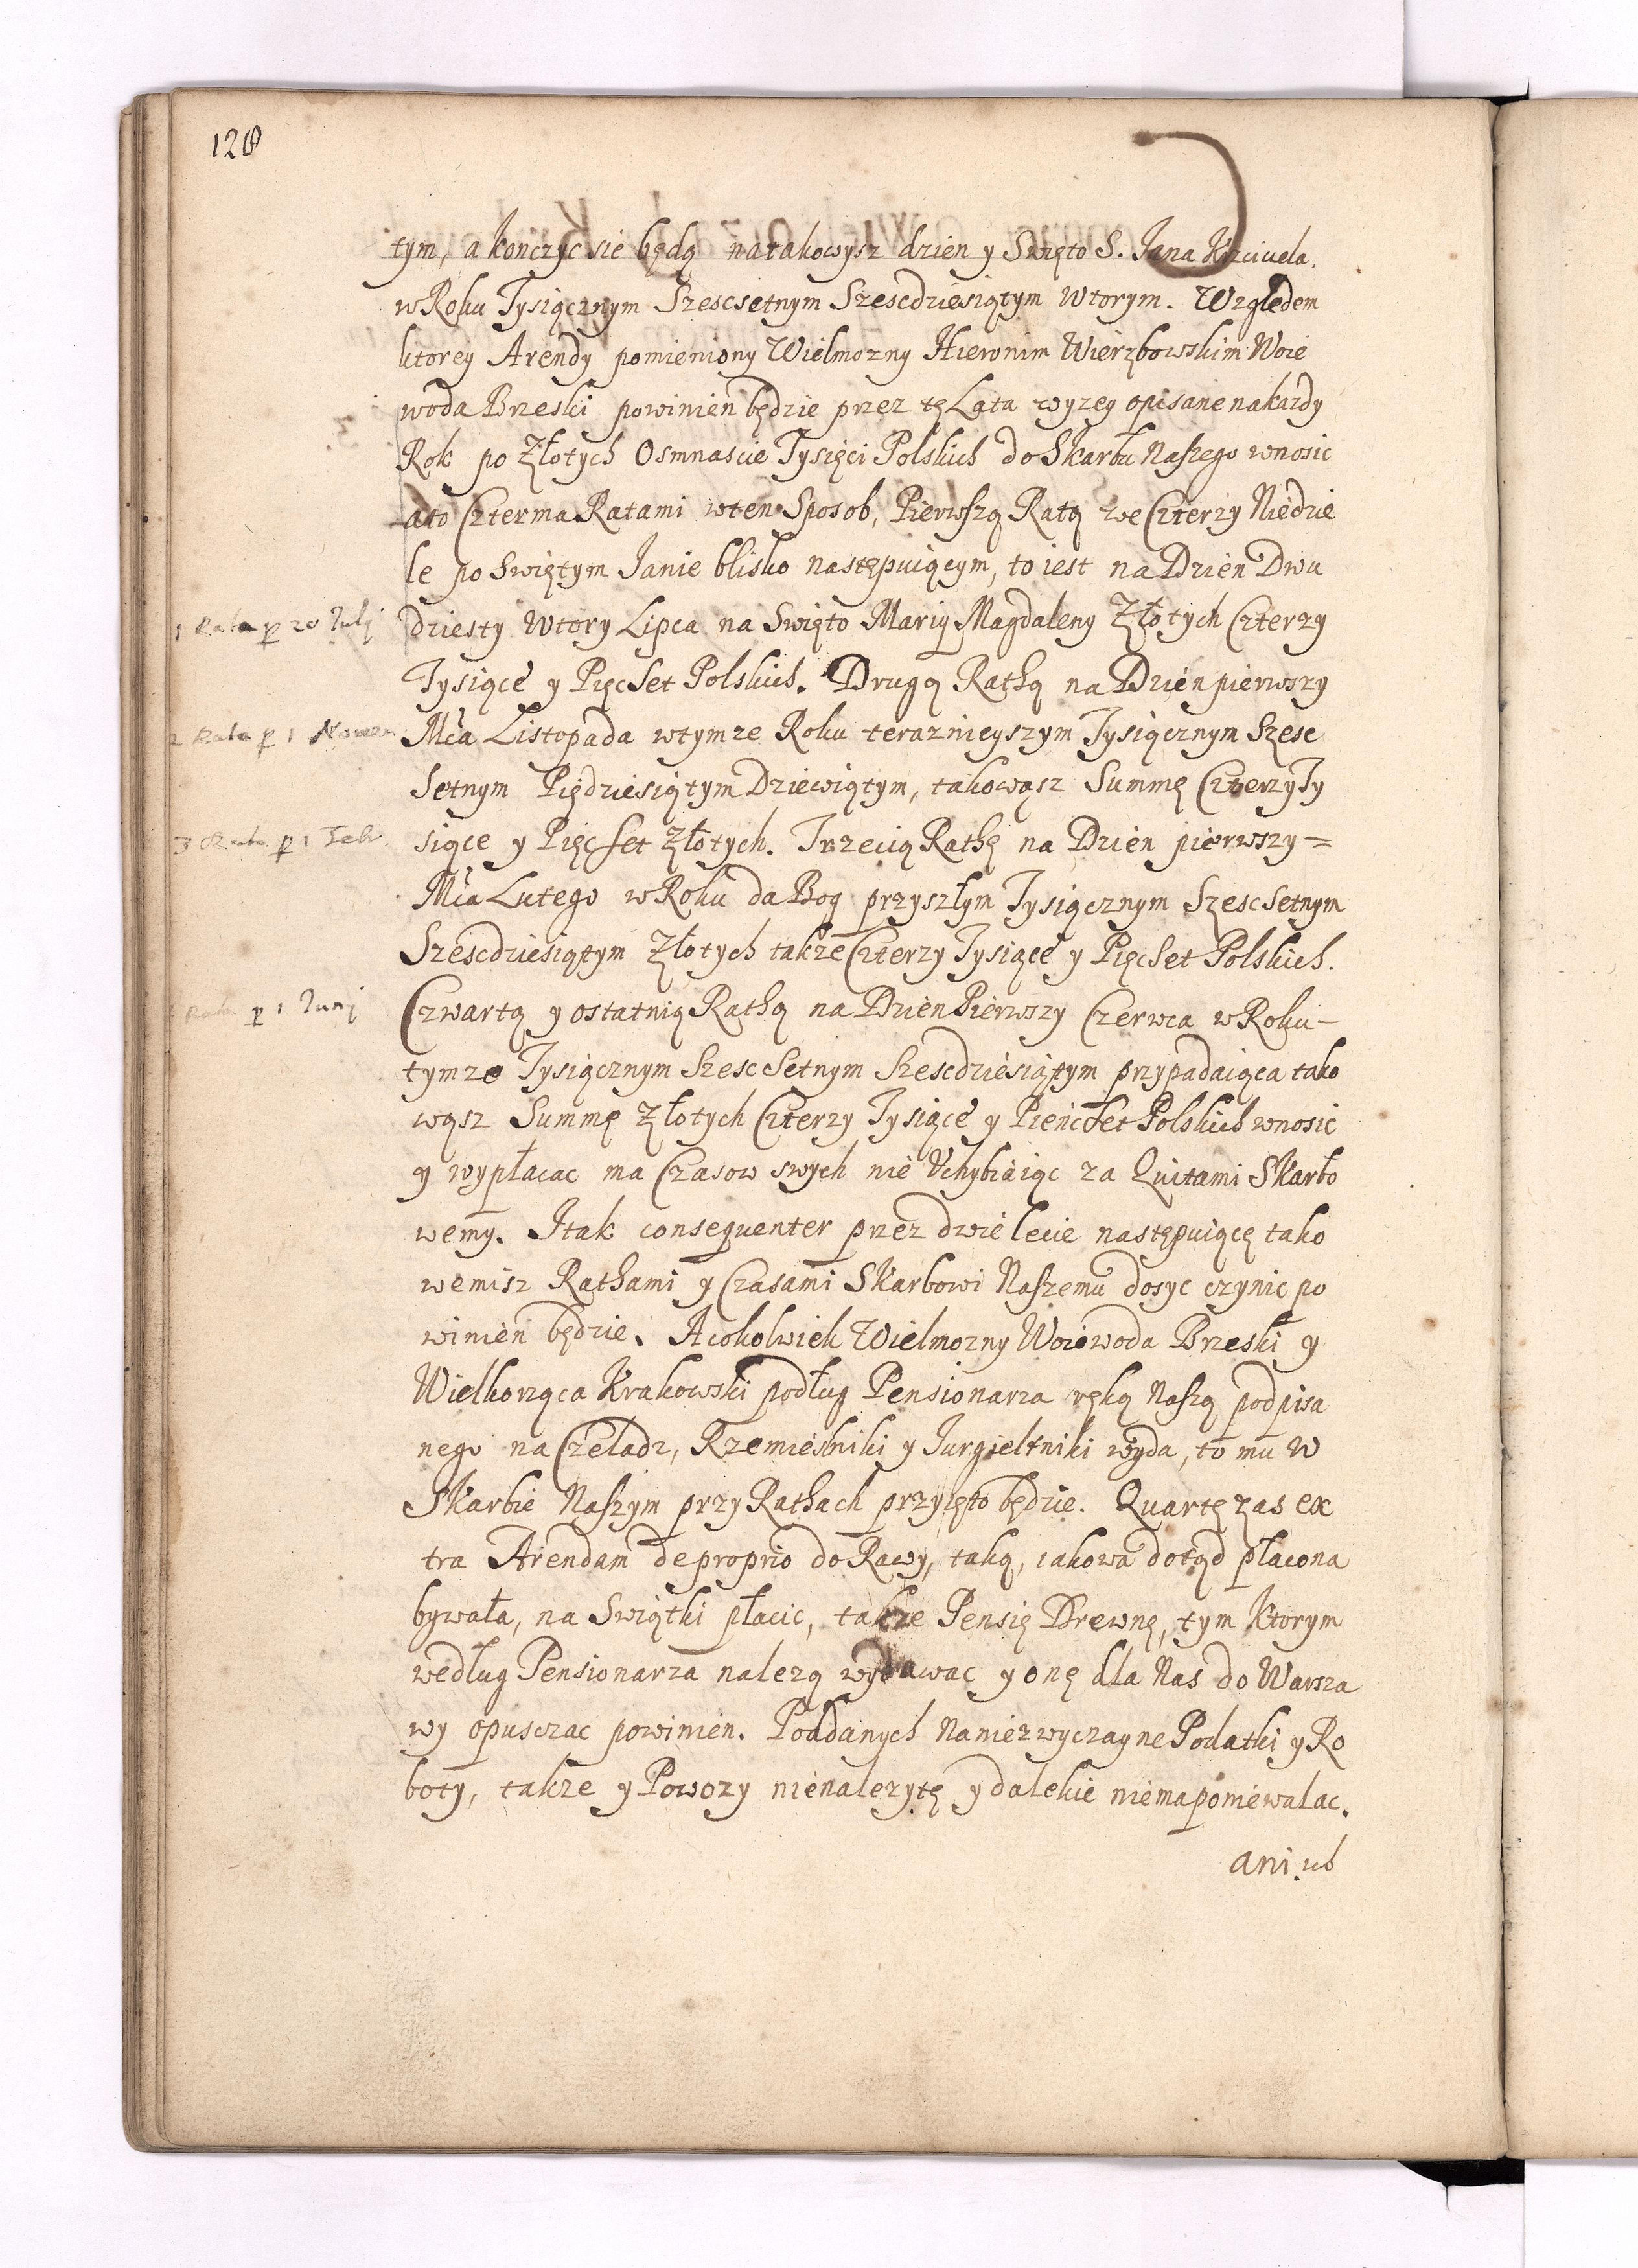 128
tym, a konczyc sie będą natakowysz dzien y Swięto S. Jana Krzciciela,
w Roku Tysiącznym Szescsetnym Szescdziesiątym Wtorym. Względem
ktorey Arendy pomieniony Wielmozny Hieronim Wierzbowskim Woie
woda Brzeski powinien będzie przez tę Lata wyzey opisane nakazdy
Rok po Złotych Osmnascie Tysięci Polskich do Skarbu Naszego wnosic
ato Czterma Ratami wten Sposob, Pierwszą Ratą we Czterzy Niedzie
le po Swiętym Janie blisko następuiącym, to iest na Dzien Dwu
1 Rata p 20 Julj
dziesty Wtory Lipca na Swięto Mariy Magdaleny Złotych Czterzy
Tysiące y Pięcset Polskich. Drugą Rathą na Dzien pierwszy
2 Rata p 1 Novem
Mca Listopada wtymze Roku teraznieyszym Tysiącznym Szesc
Setnym Piędziesiątym Dziewiątym, takowąsz Summę Czterzy Ty
3 Rata p 1 Febr
siące y Pięcset Złotych. Trzecią Rathę na Dzien pierwszy =
Mca Lutego w Roku da Bog przyszłym Tysiącznym Szescsetnym
Szescdziesiątym Złotych takze Czterzy Tysiące y Pięcset Polskich.
Rata p 1 Junj
Czwartą y ostatnią Rathą na Dzien Pierwszy Czerwca w Roku –
tymze Tysiącznym Szescsetnym Szescdziesiątym przypadaiąca tako
wąsz Summę Złotych Czterzy Tysiące y Piencset Polskich wnosic
y wypłacac ma Czasow swych nie Uchybiaiąc za Quitami Skarbo
wemy. Itak consequenter przez dwie lecie następuiącę tako
wemisz Rathami y Czasami Skarbowi Naszemu dosyc czynic po
winien będzie. Acokolwiek Wielmozny Woiewoda Brzeski y
Wielkorząca Krakowski podług Pensionarza ręką Naszą podpisa
nego na Czeladz, Rzemiesniki y Jurgieltniki wyda, to mu w
Skarbie Naszym przy Rathach przyięto będzie. Quartę zas ex
tra Arendam de proprio do Rawy, taką, iakowa dotąd płacona
bywała, na Swiątki płacic, takze Pensię Drewnę, tym Ktorym
według Pensionarza nalezą wydawac y onę dla Nas do Warsza
wy opuszczac powinien. Poddanych Naniezwyczayne Podatki y Ro
boty, takze y Powozy nienalezytę y dalekie niema poniewalac.
ani ich